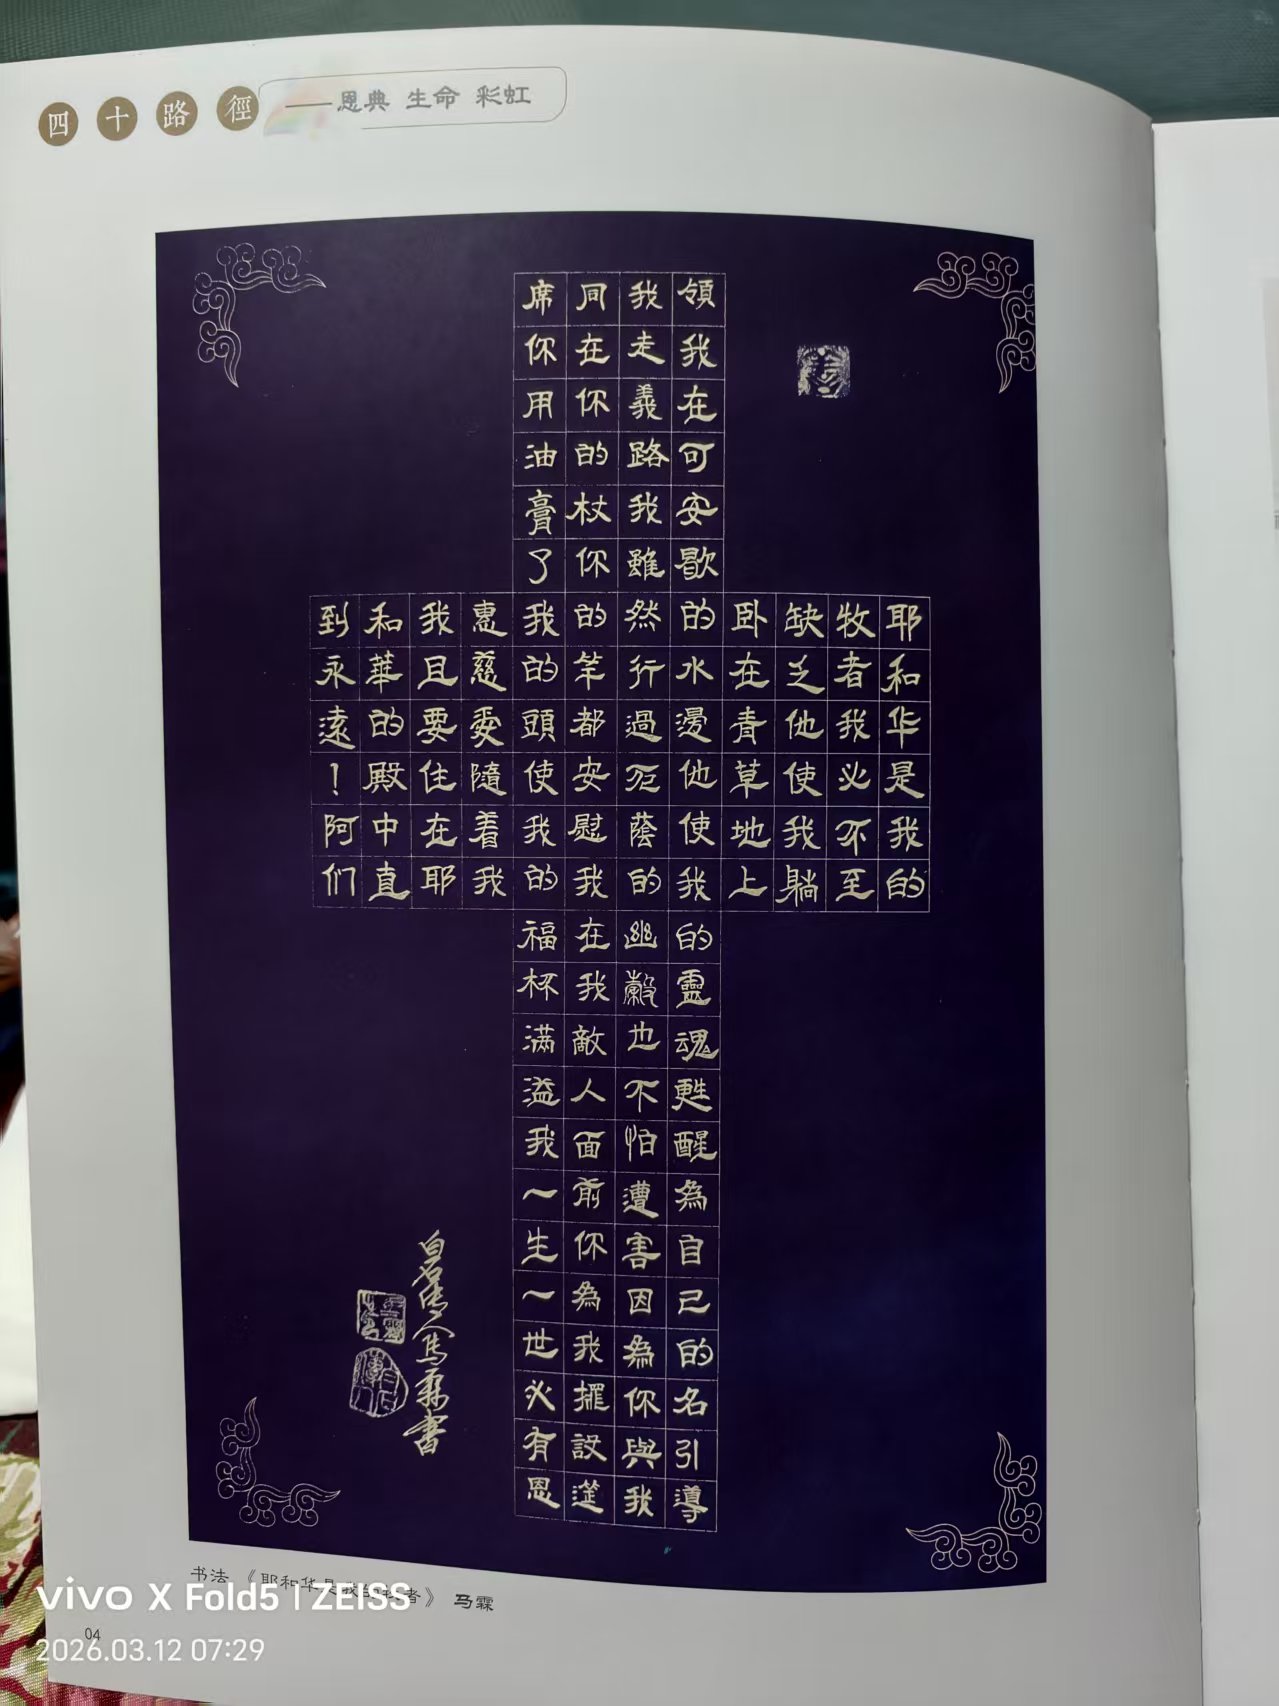 四十路徑
——恩典 生命 彩虹
耶和华是我的
牧者我必不至
缺乏他使我躺
卧在青草地上
領我在可安歇的水邊他使我的靈魂甦醒為自己的名引導
我走義路我雖然行過死蔭的幽穀也不怕遭害因為你與我
同在你的杖你的竿都安慰我在我敵人面前你為我擺設筵
席你用油膏了我的頭使我的福杯满溢我一生一世必有恩
惠慈愛隨着我
我且要住在耶
和華的殿中直
到永遠！阿们
白石传人馬霖書
书法《耶和华是我的牧者》 马霖
04
vivo X Fold5 | ZEISS
2026.03.12 07:29